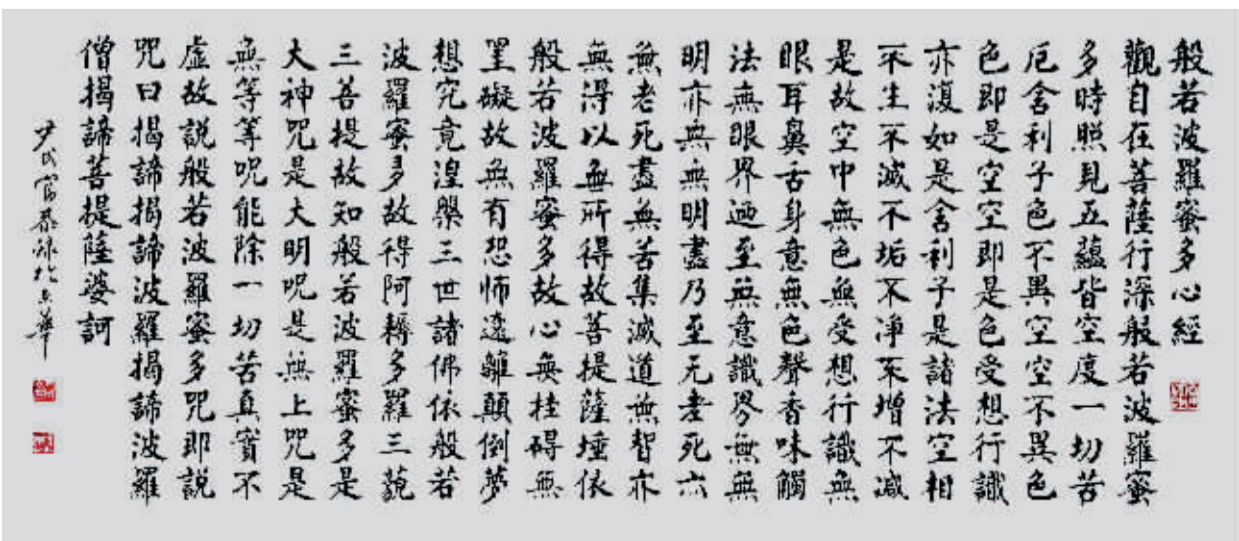 般若波羅蜜多心經
觀自在菩薩行深般若波羅蜜
多時照見五蘊皆空度一切苦
厄舍利子色不異空空不異色
色即是空空即是色受想行識
亦復如是舍利子是諸法空相
不生不滅不垢不淨不增不減
是故空中無色無受想行識無
眼耳鼻舌身意無色聲香味觸
法無眼界迺至無意識界無無
明亦無無明盡乃至无老死亦
無老死盡無苦集滅道無智亦
無得以無所得故菩提薩埵依
般若波羅蜜多故心無桂碍無
罣礙故無有恐怖遠離顛倒夢
想究竟涅槃三世諸佛依般若
波羅蜜多故得阿耨多羅三藐
三菩提故知般若波羅蜜多是
大神咒是大明呪是無上咒是
無等等呪能除一切苦真實不
虛故説般若波羅蜜多咒即説
咒曰揭諦揭諦波羅揭諦波羅
僧揭諦菩提薩婆訶